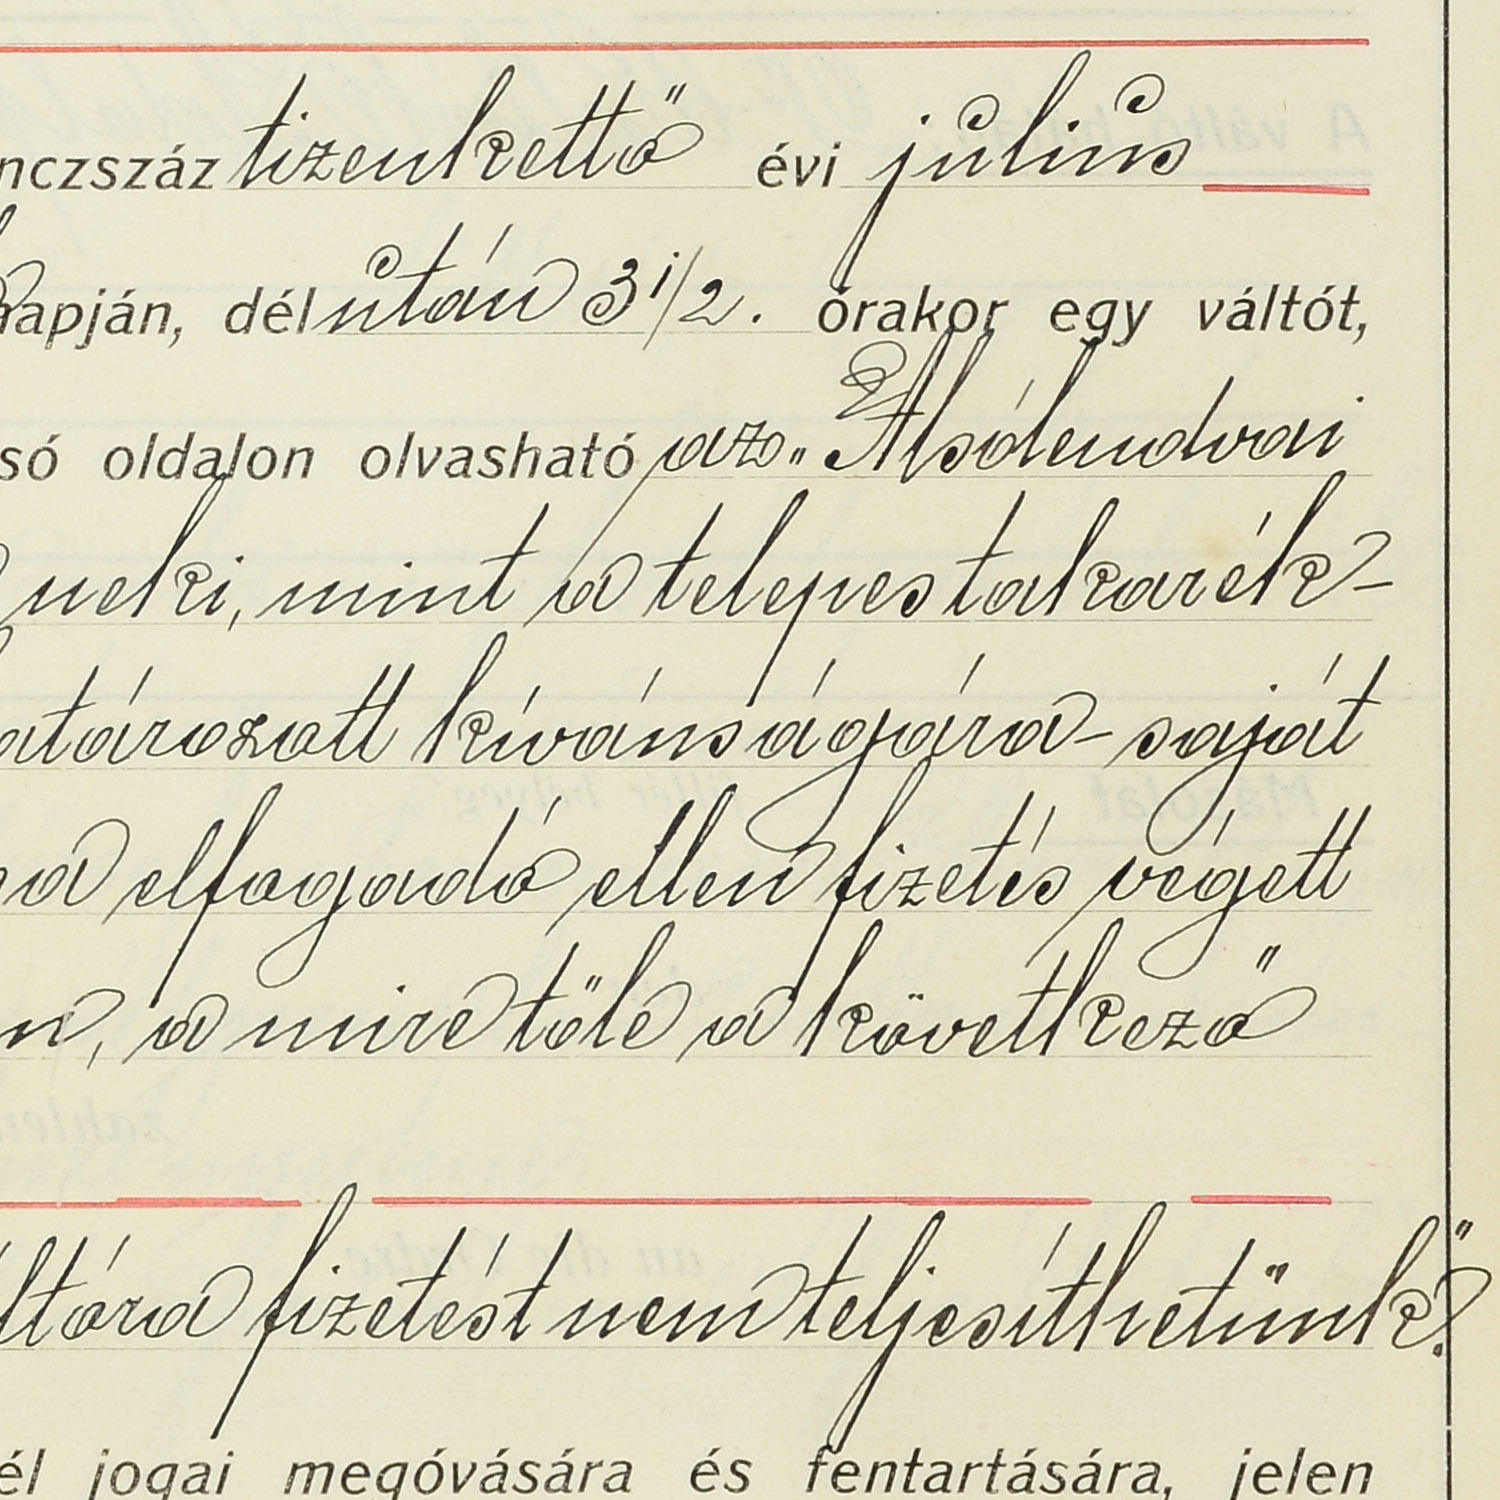 nczszáz tizenkettő évi július
napján, délután 3 1/2. órakor egy váltót,
só oldalon olvasható az „Alsólendvai
neki, mint a telepes takarék-
atározott kívánságára - saját
elfogadó ellen fizetés végett
n, a mire tőle a következő
ltóra fizetést nem teljesíthetünk."
él jogai megóvására és fentartására, jelen